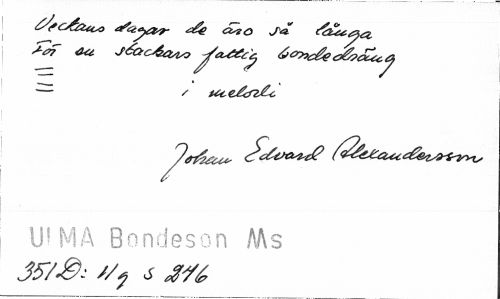 Veckans dagar de äro så långa
För en stackars fattig bondedräng
i melodi
Johan Edvard Alexandersson
ULMA Bondeson Ms
351D: 4 g s 246